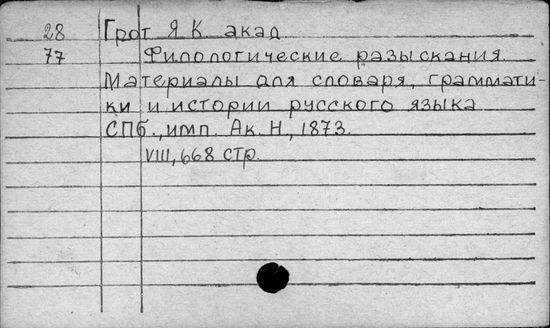 28 Грот Я К акад
77 Филологические разыскания.
Материалы для словаря, граммати-
ки и истории русского языка
СПб., имп. Ак. Н., 1873.
VIII, 668 стр.